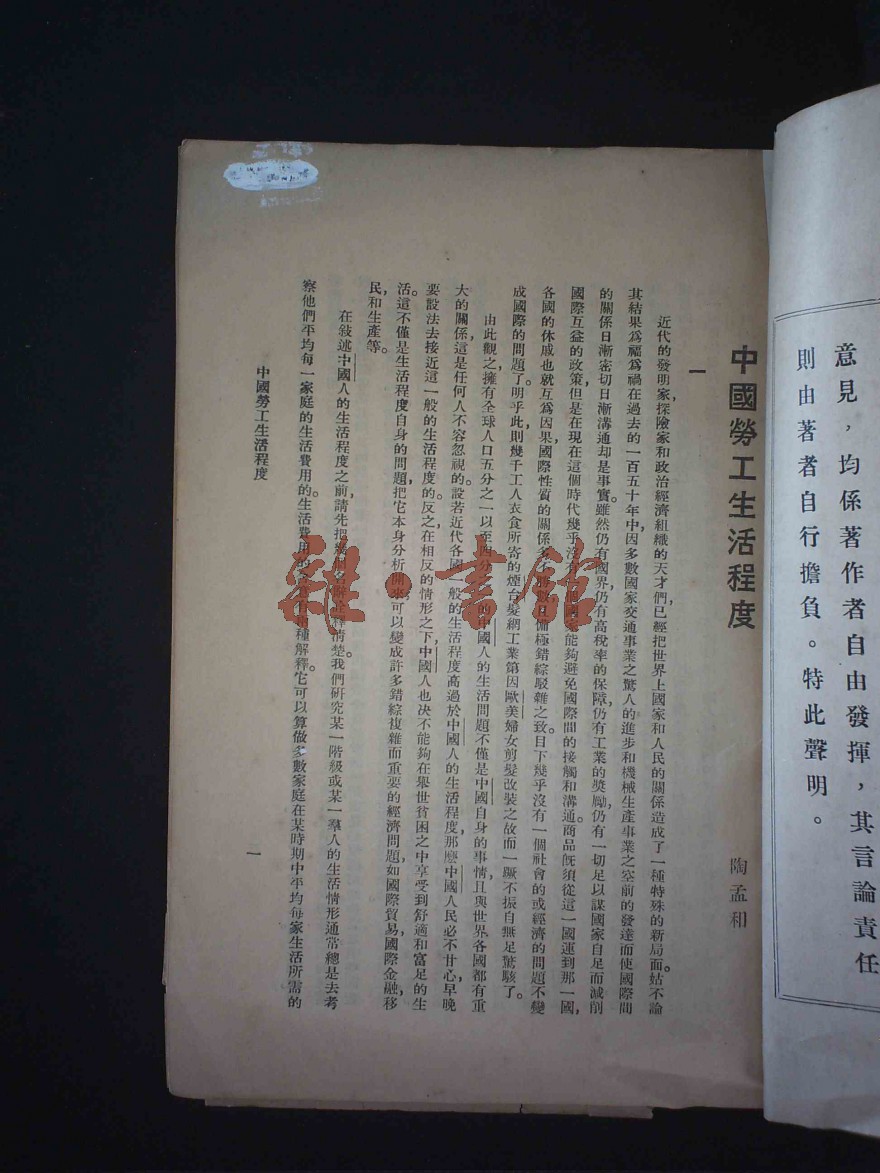 意見，均係著作者自由發揮，其言論責任
則由著者自行擔負。特此聲明。
中國勞工生活程度
陶孟和
一
近代的發明家，探險家和政治經濟組織的天才們，已經把世界上國家和人民的關係造成了一種特殊的新局面。姑不論
其結果爲福爲禍，在過去的一百五十年中，因多數國家交通事業之驚人的進步和機械生產事業之空前的發達而使國際間
的關係日漸密切，日漸溝通，却是事實。雖然仍有國界，仍有高稅率的保障，仍有工業的獎勵，仍有一切足以謀國家自足而減削
國際互益的政策，但是在現在這個時代幾乎沒有一個國家能夠避免國際間的接觸和溝通。商品旣須從這一國運到那一國，
各國的休戚也就互爲因果。國際性質的關係多不勝數，且備極錯綜駁雜之致。目下幾乎沒有一個社會的或經濟的問題不變
成國際的問題了。明乎此，則幾千工人衣食所寄的煙台髮網工業第因歐美婦女剪髮改裝之故而一蹶不振，自無足驚駭了。
由此觀之，擁有全球人口五分之一以至四分之一的中國人的生活問題不僅是中國自身的事情，且與世界各國都有重
大的關係，這是任何人不容忽視的。設若近代各國一般的生活程度高過於中國人的生活程度，那麼中國人民必不甘心，早晚
要設法去接近這一般的生活程度的。反之，在相反的情形之下，中國人也決不能夠在舉世貧困之中享受到舒適和富足的生
活。這不僅是生活程度自身的問題，把它本身分析開來可以變成許多錯綜複雜而重要的經濟問題，如國際貿易，國際金融，移
民，和生產等。
在敍述中國人的生活程度之前，請先把幾個名辭詮釋清楚。我們研究某一階級或某一羣人的生活情形通常總是去考
察他們平均每一家庭的生活費用的。生活費用的意有兩種解釋。它可以算做多數家庭在某時期中平均每家生活所需的
中國勞工生活程度
一
雜·書館